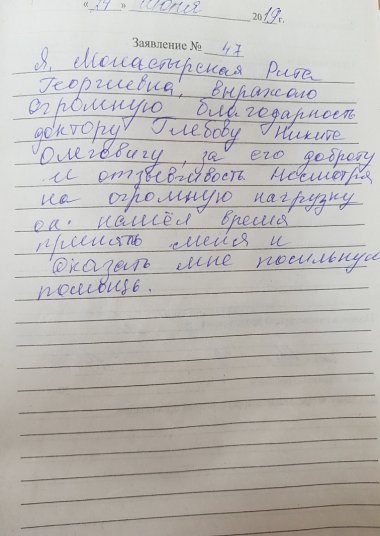 «19» июня 2019 г.
Заявление № 47
Я, Монастырская Рита
Георгиевна, выражаю
огромную благодарность
доктору Глебову Никите
Олеговичу, за его доброту
и отзывчивость несмотря
на огромную нагрузку
он. нашёл время
принять меня и
Оказать мне посильную
помощь.